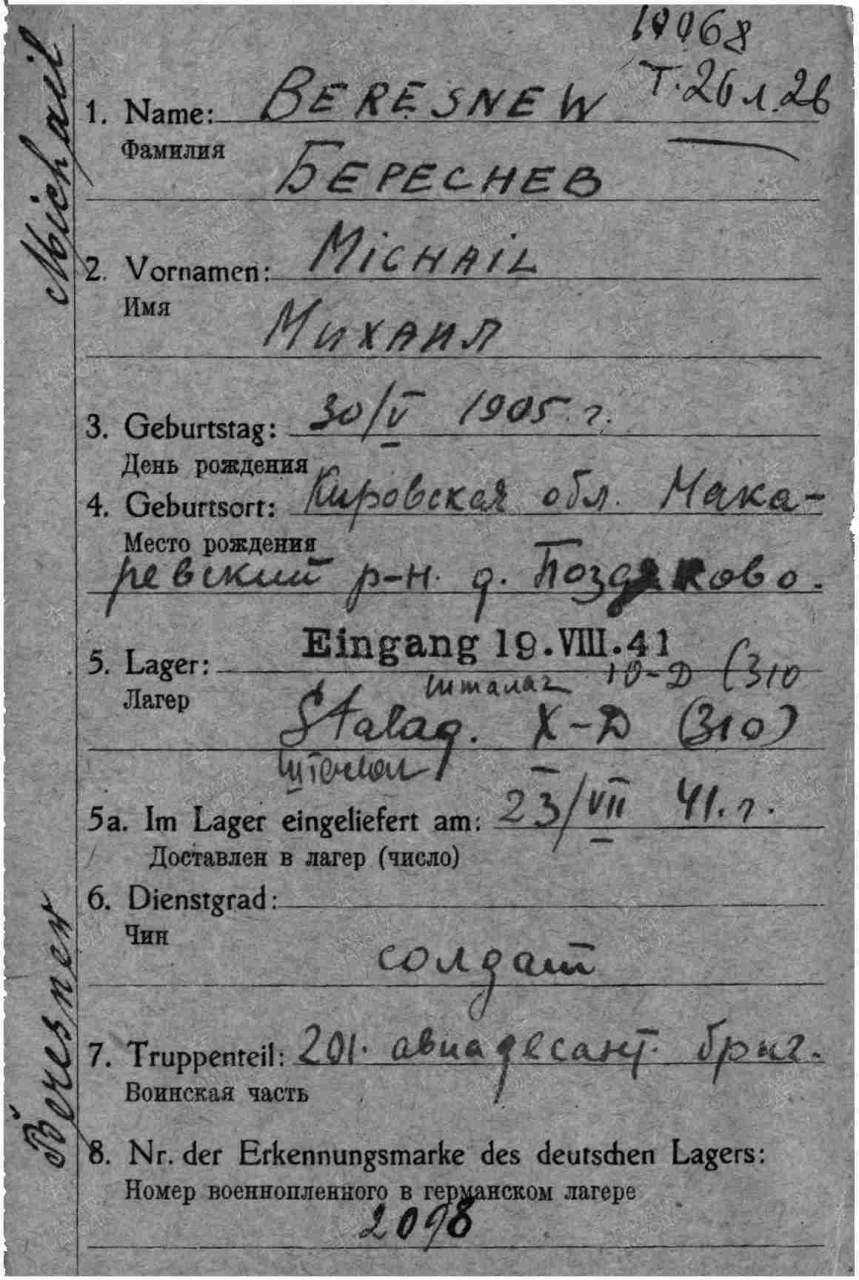 10068
Т. 26 л. 26
1. Name: BERESNEW
Фамилия
БЕРЕСНЕВ
2. Vornamen: MICHAIL
Имя
МИХАИЛ
3. Geburtstag: 30/V 1905 г.
День рождения
4. Geburtsort: Кировская обл. Мака-
Место рождения
ревский р-н. д. Поздяково.
Eingang 19.VIII.41
5. Lager:
шталаг 10-D (310
Лагер
Stalag. X-D (310)
5a. Im Lager eingeliefert am: 23/VII 41. г.
Доставлен в лагер (число)
6. Dienstgrad:
Чин
солдат
7. Truppenteil: 201. авиадесант. бриг.
Воинская часть
8. Nr. der Erkennungsmarke des deutschen Lagers:
Номер военнопленного в германском лагере
2098
Beresnew Michail